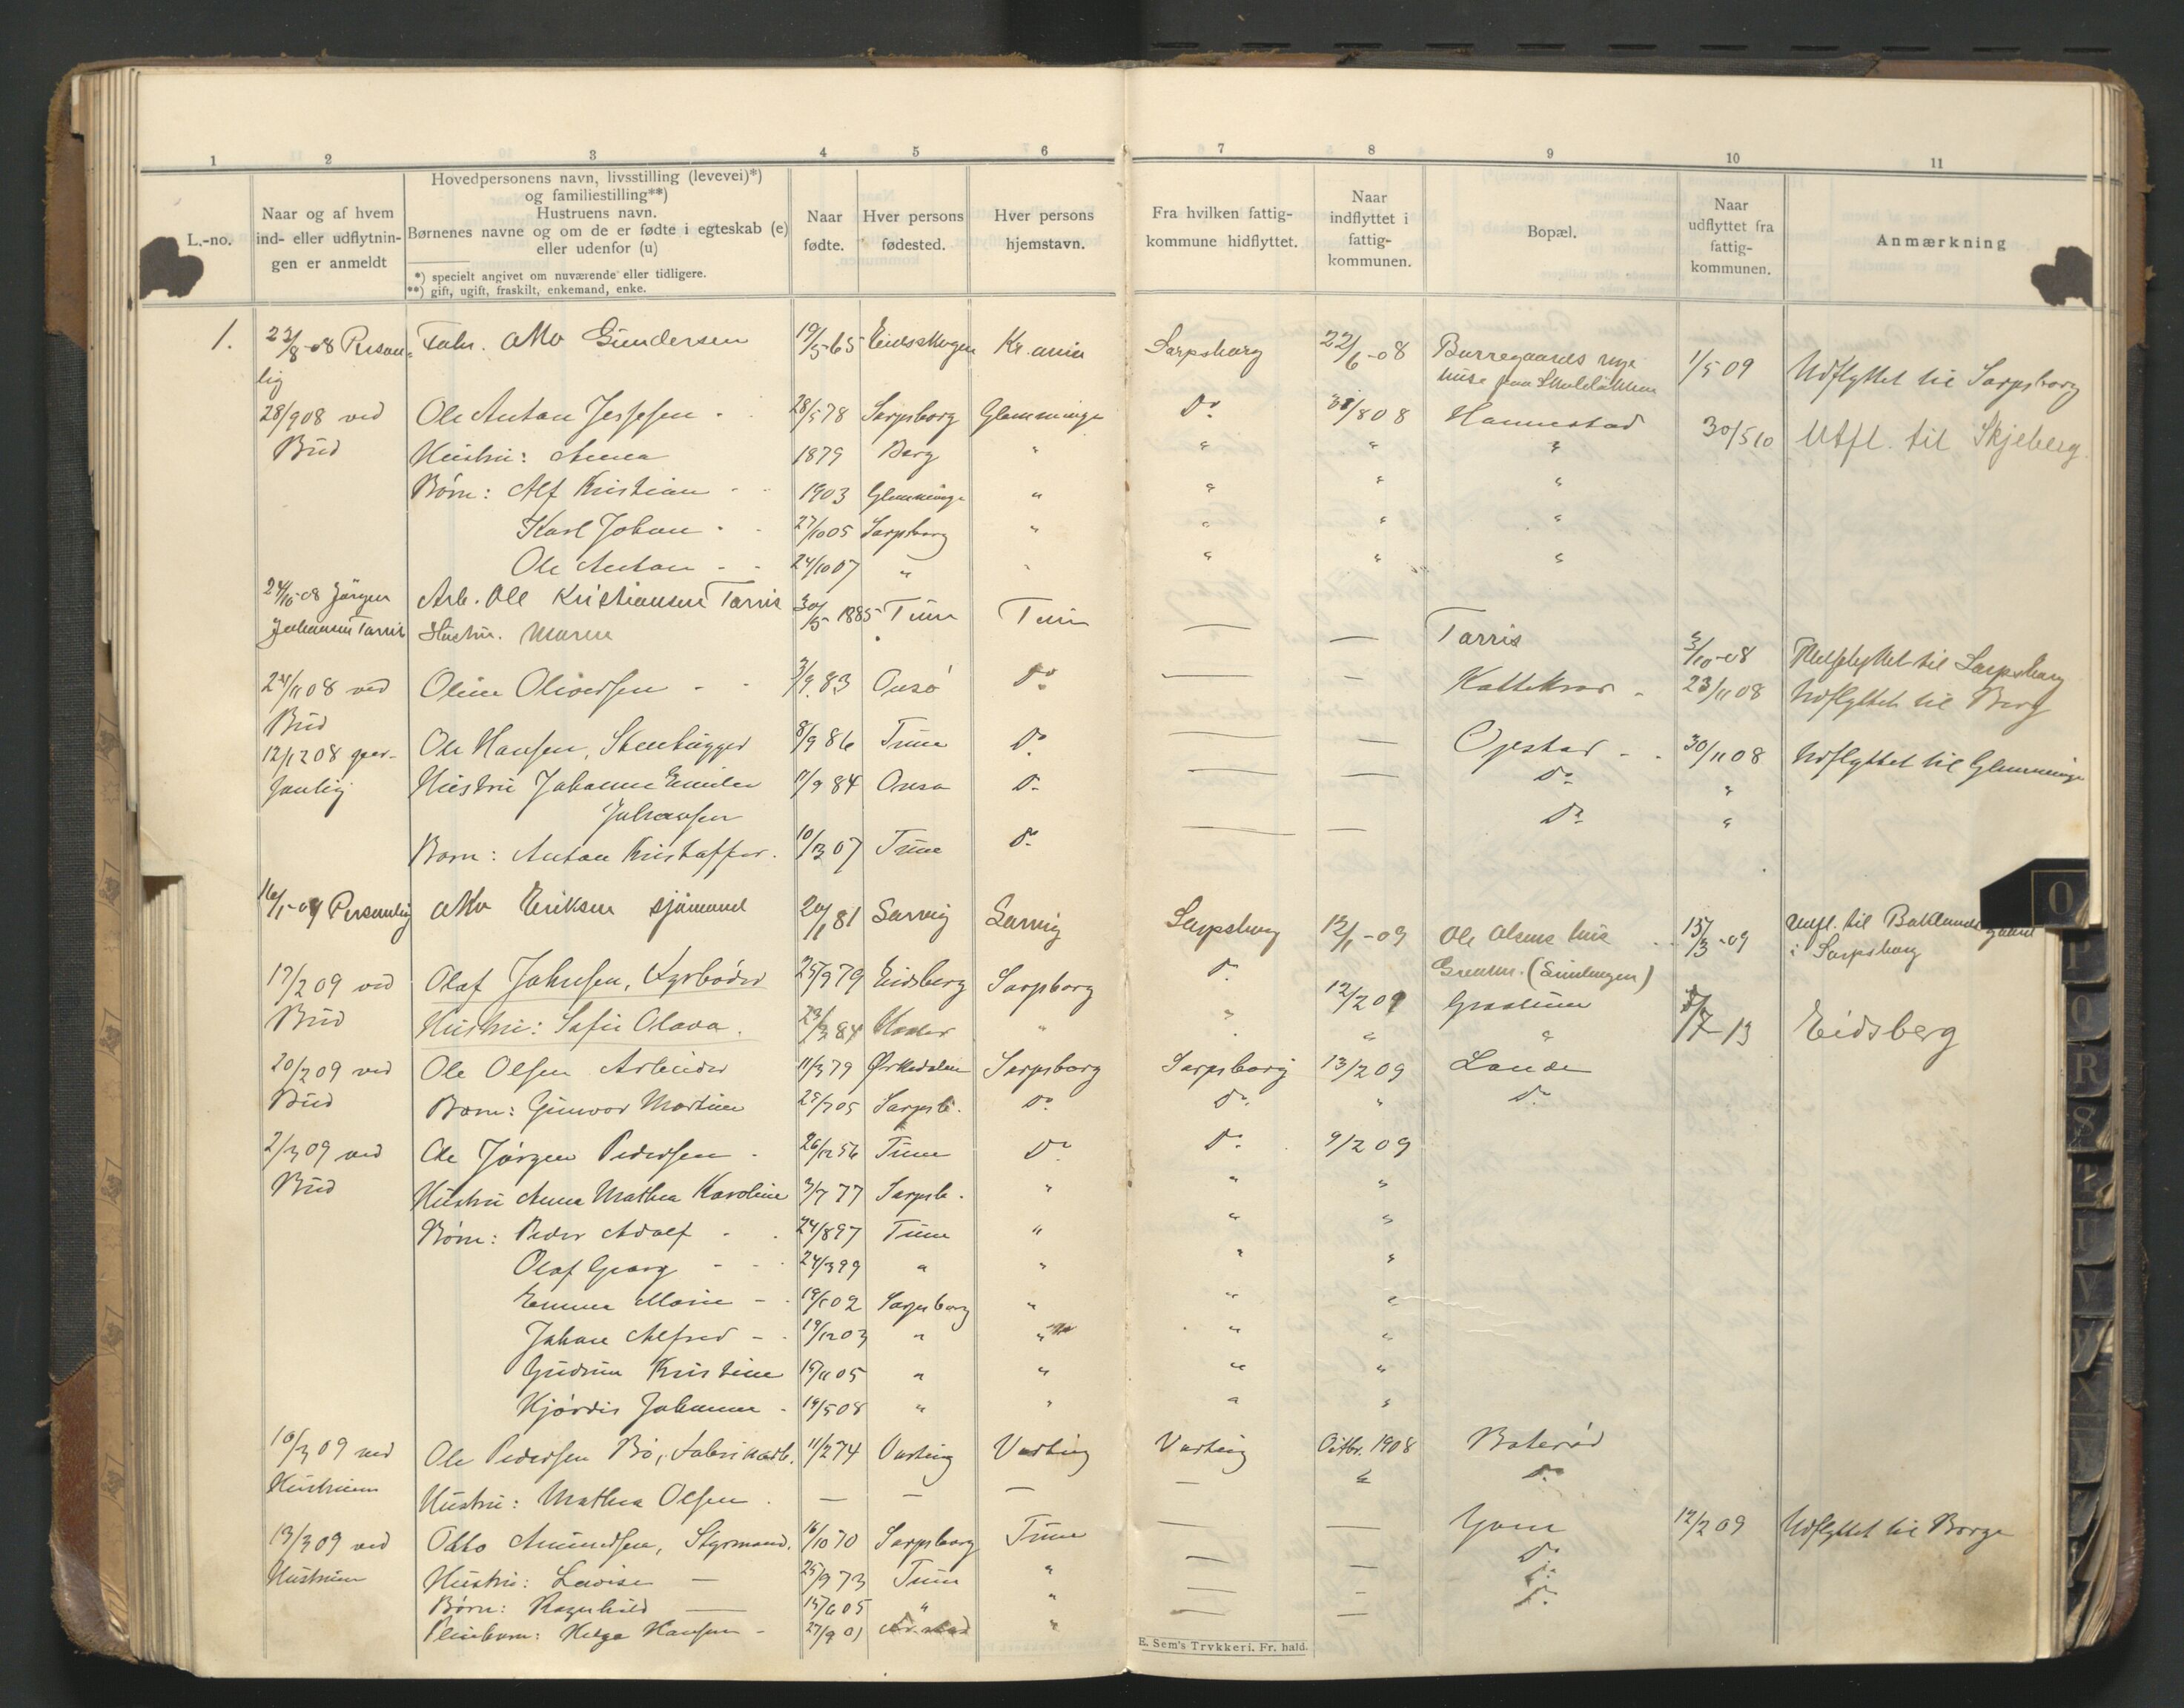 1 2 3 4 5 6 7 8 9 10 11
L.-no.
Naar og af hvem
ind- eller udflytnin-
gen er anmeldt
Hovedpersonens navn, livsstilling (levevei)*)
og familiestilling**)
Hustruens navn.
Børnenes navne og om de er fødte i egteskab (e)
eller udenfor (u)
*) specielt angivet om nuværende eller tidligere.
**) gift, ugift, fraskilt, enkemand, enke.
Naar
fødte.
Hver persons
fødested.
Hver persons
hjemstavn.
Fra hvilken fattig-
kommune hidflyttet.
Naar
indflyttet i
fattig-
kommunen.
Bopæl.
Naar
udflyttet fra
fattig-
kommunen.
Anmærkning
1. 22/8-08 Person- Fabr. Otto Gundersen 19/5-65 Eidsskogen Kr.ania Sarpsborg 22/6-08 Borregaards nye 1/5 09 Udflyttet til Sarpsborg
lig huse paa
28/9 08 ved Ole Anton Jessesen 28/5 78 Sarpsborg Glemminge Do 31/8 08 Hannestad 30/5 10 Utfl. til Skjeberg.
Bud Hustru: Anna 1879 Berg " " " "
Børn: Alf Kristian 1903 Glemminge " " " "
Karl Johan 27/10 05 Sarpsborg " " " "
Ole Anton 24/10 07 " " " " "
24/10-08 Jörgen Arb. Ole Kristiansen Tarris 30/5 1885 Tune Tune — — Tarris 3/10-08 til Sarpsborg
Johansen Tarris Hustru. Maren "
24/11 08 ved Oline Oliversen 3/9 83 Onsø Do — — 23/11 08 Udflyttet til Berg
Bud
12/12 08 per- Ole Hansen, Stenhugger 8/9 86 Tune Do — — Opstad 30/11 08 Udflyttet til Glemminge
sonlig Hustru Johanne Emilie 11/9 84 Onsø Do — — Do "
Johansen
Barn: Anton Kristoffer. 10/3 07 Tune Do — — Do "
16/1-09 Personlig Otto Eriksen sjömand 20/1 81 Larvig Larvig Sarpsborg 12/1-09 Ole Olsens hus 15/3-09 Utfl. til Baklandsgaard
i Sarpsborg
17/2 09 ved Olaf Johnsen, Fyrbøder 25/9 79 Eidsberg Sarpsborg Do 12/2 09 Gralum 7-13 Eidsberg
Bud Hustru: Sofie Olava. 23/3 84 " " " "
20/2 09 ved Ole Olsen Arbeider 11/3 79 Ørkedalen Sarpsborg Sarpsborg 13/2 09 Lande
Bud Barn: Gunvor Martine 25/7 05 Sarpsb. Do Do " Do
2/3 09 ved Ole Jørgen Pedersen 26/12 56 Tune Do Do 9/2 09
Bud Hustru Anna Mathea Karoline 3/7 77 Sarpsb. " " "
Børn: Peder Adolf 24/8 97 Tune " " "
Olaf Georg 24/3 99 " " " "
Emma Marie 19/5 02 Sarpsborg " " "
Johan Alfred 19/12 03 " " " "
Gudrun Kristine 15/11 05 " " " "
Hjördis Johanne 14/5 08 " " " "
10/3 09 ved Ole Pedersen Bö, Fabrikarb. 11/2 74 Varteig Varteig Varteig Octbr. 1908 Baterød
Hustruen Hustru: Mathea Olsen — — — — " Do
13/3 09 ved Otto Amundsen, Styrmand. 16/10 70 Sarpsborg Tune — — 12/2 09 Udflyttet til Borge
Hustruen Hustru: Lovise — 25/9 73 Tune " — — Do
Børn: Ragnhild — 15/6 05 " " — — Do
Pleiebarn: Helga Hansen 27/9 01 " — — Do
E. Sem's Trykkeri. Fr. hald.
O
P
Q
R
S
T
U
V
X